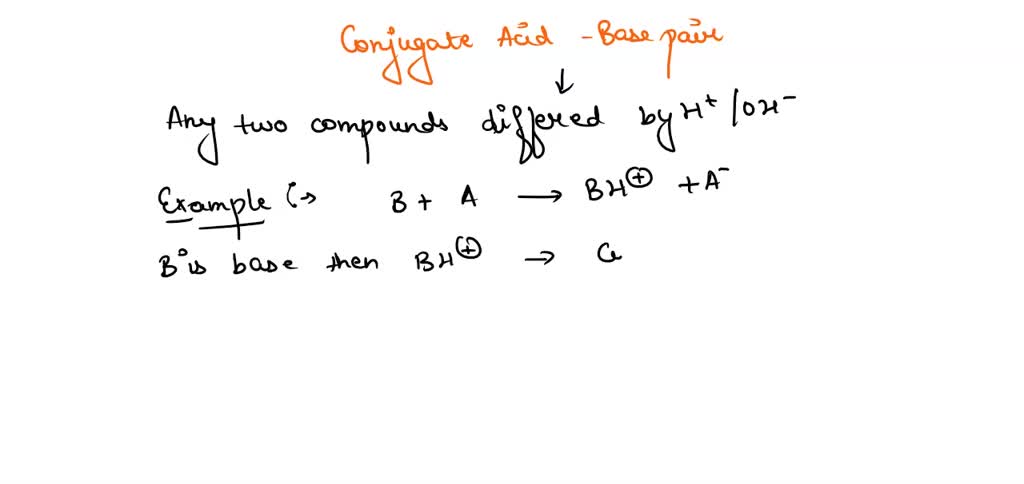 Conjugate Acid - Base pair
↓
Any two compounds differed by H⁺ / OH⁻
Example :→ B + A ⟶ BH⊕ + A⁻
B is base then BH⊕ → C